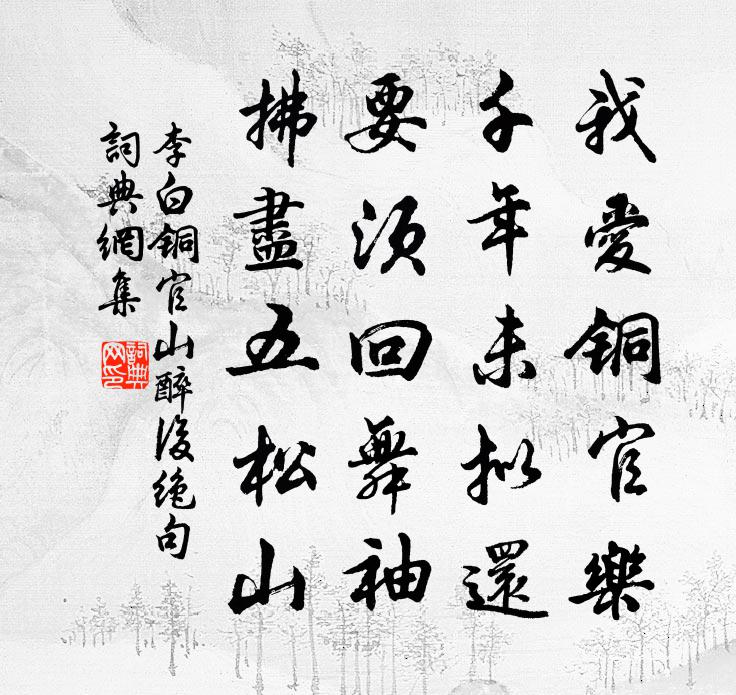 我愛铜官樂
千年未拟還
要须回舞袖
拂盡五松山
李白铜官山醉后绝句
詞典網集
詞典网印